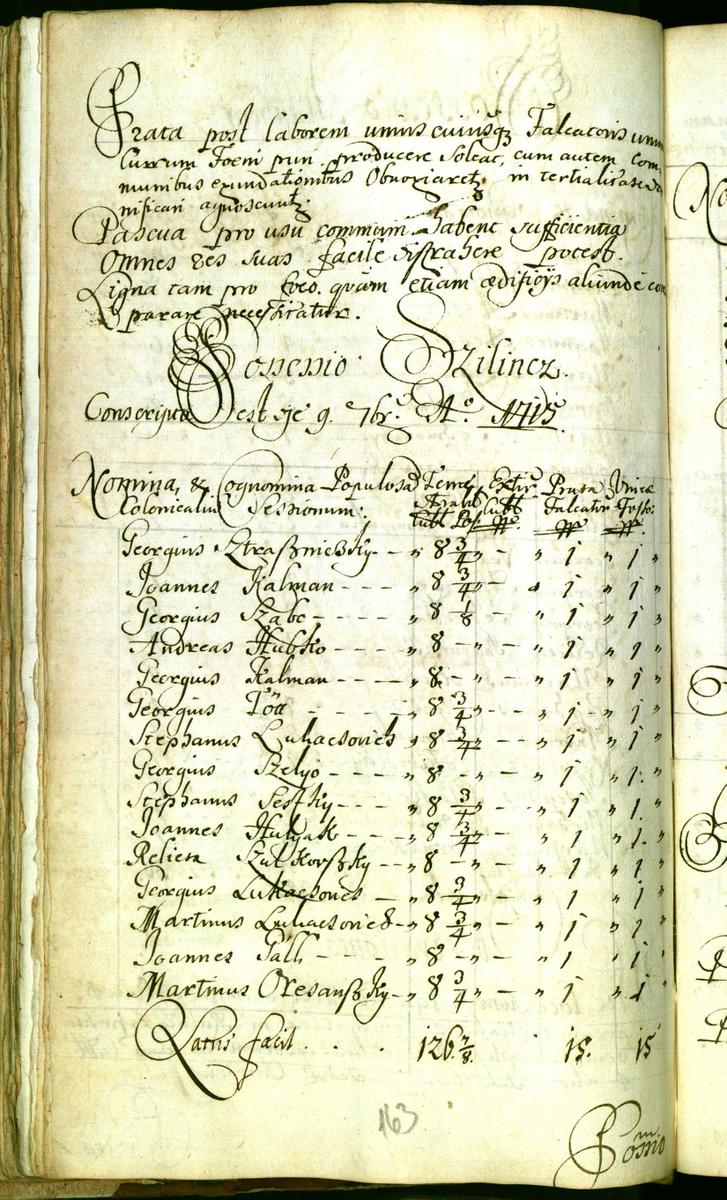 Prata post laborem unius cuiusq Falcatoris unum
Currum Foeni puri producere Soleat, cum autem Com
munibus exundationibus Obnoxiaret, in tertialitate
nificari agnoscunt
Pascua pro usu communi habent sufficientia
Omnes res suas facile distrahere potest.
Ligna tam pro foco, quam etiam ædificijs aliunde com
parare necessitatur.
Possessio Szilincz.
Conscripta est die 9. 7br. Ao. 1715.
Nomina, & Cognomina Populosa Terræ Extir. Prata Vineæ
Colonicalium Sessionum. Arabil Cubl Falcator Fosso.
Cubl Pos. Nr. Nr. Nr.
Georgius Straßniczky - - " 8 3/4 " - " 1 " 1 "
Joannes Kalman - - - - " 8 3/4 " - " 1 " 1 "
Georgius Szabo - - - - " 8 1/8 - " 1 " 1 "
Andreas Hubko - - - " 8 - " - " 1 " 1 "
Georgius Kalman - - - - " 8 - " - " 1 " 1 "
Georgius Tót - - - - " 8 3/4 " - " 1 - " 1 "
Stephanus Lukacsovich " 8 3/4 " - " 1 " 1 "
Georgius - - - " 8 - " - " 1 " 1 "
Stephanus Sestky - - - " 8 3/4 " - " 1 " 1 "
Joannes - - - " 8 3/4 " - " 1 " 1 "
Relicta - - " 8 - " - " 1 " 1 "
Georgius Lukacsovics - " 8 3/4 " - " 1 " 1 "
Martinus Lukacsovics - " 8 3/4 " - " 1 " 1 "
Joannes Gall - - - " 8 - " - " 1 " 1 "
Martinus Oresanßky - " 8 3/4 " - " 1 " 1 "
Latus facit . . . 126 7/8. 15. 15
163